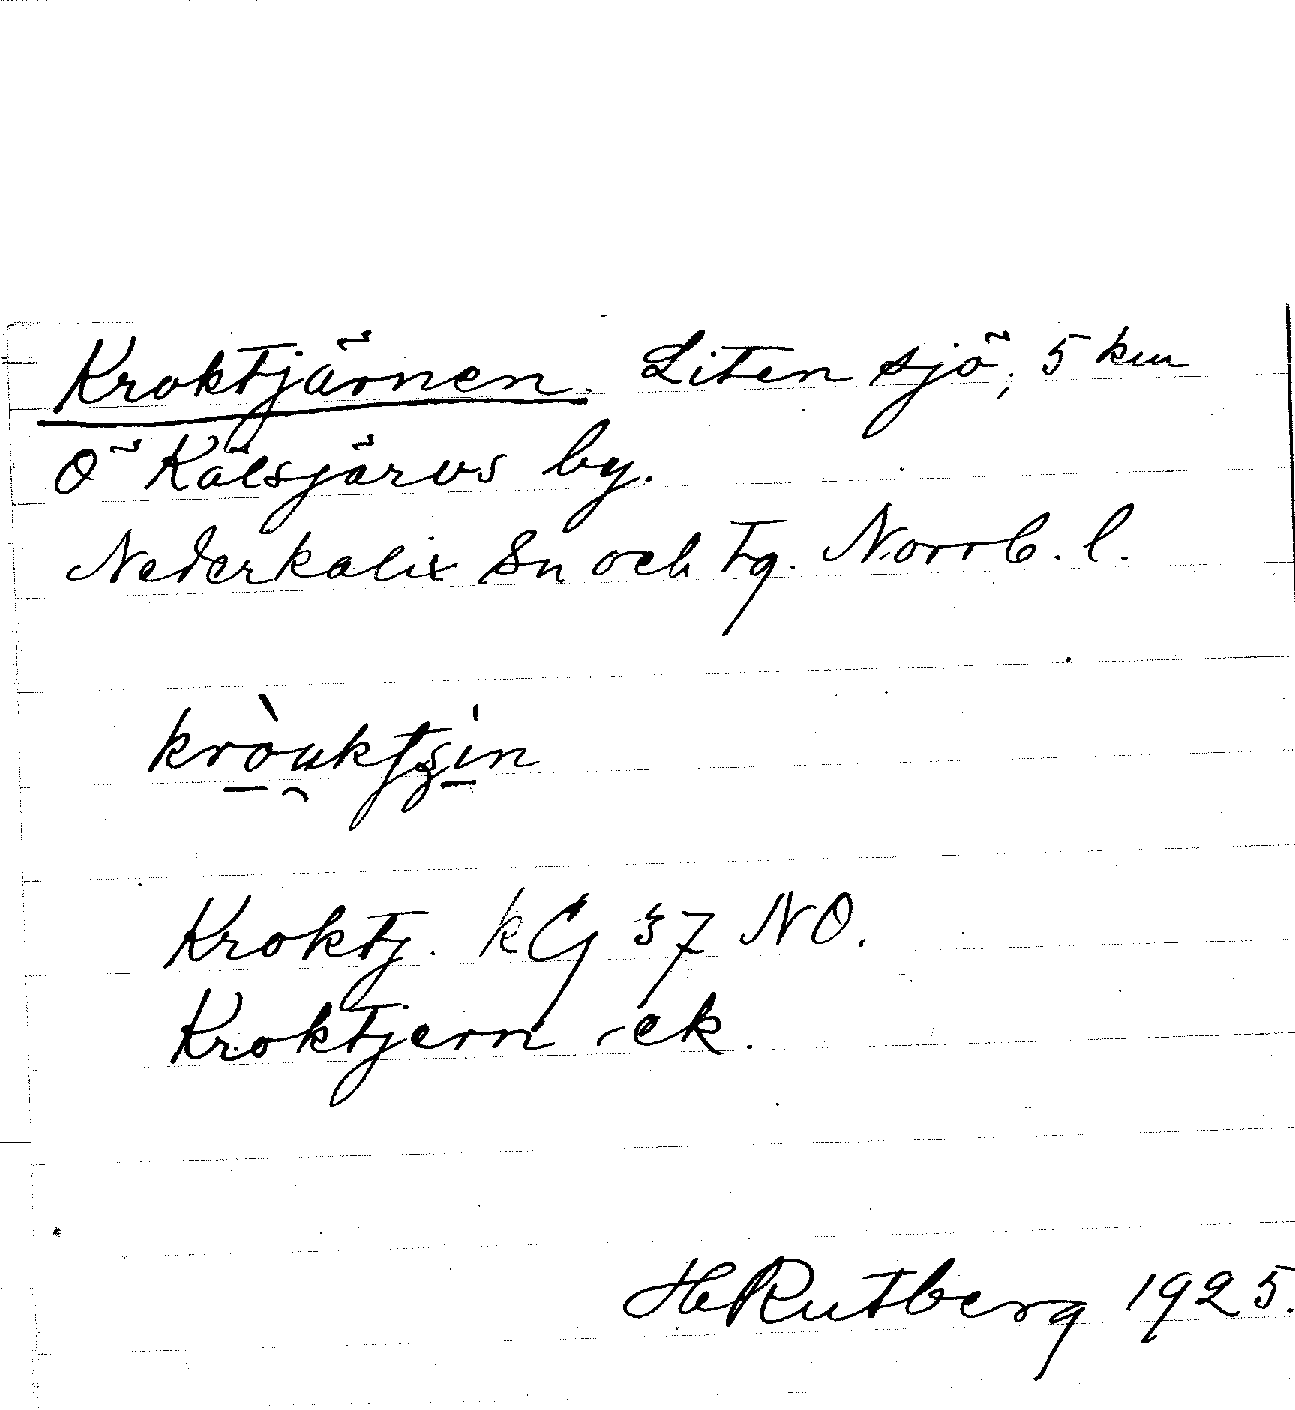 Kroktjärnen. Liten sjö, 5 km
Ö Kälsjärvs by.
Nederkalix Sn och tg. Norrb. l.
Kroktj. kG 37 NO.
Kroktjern -ek.
HRutberg 1925.